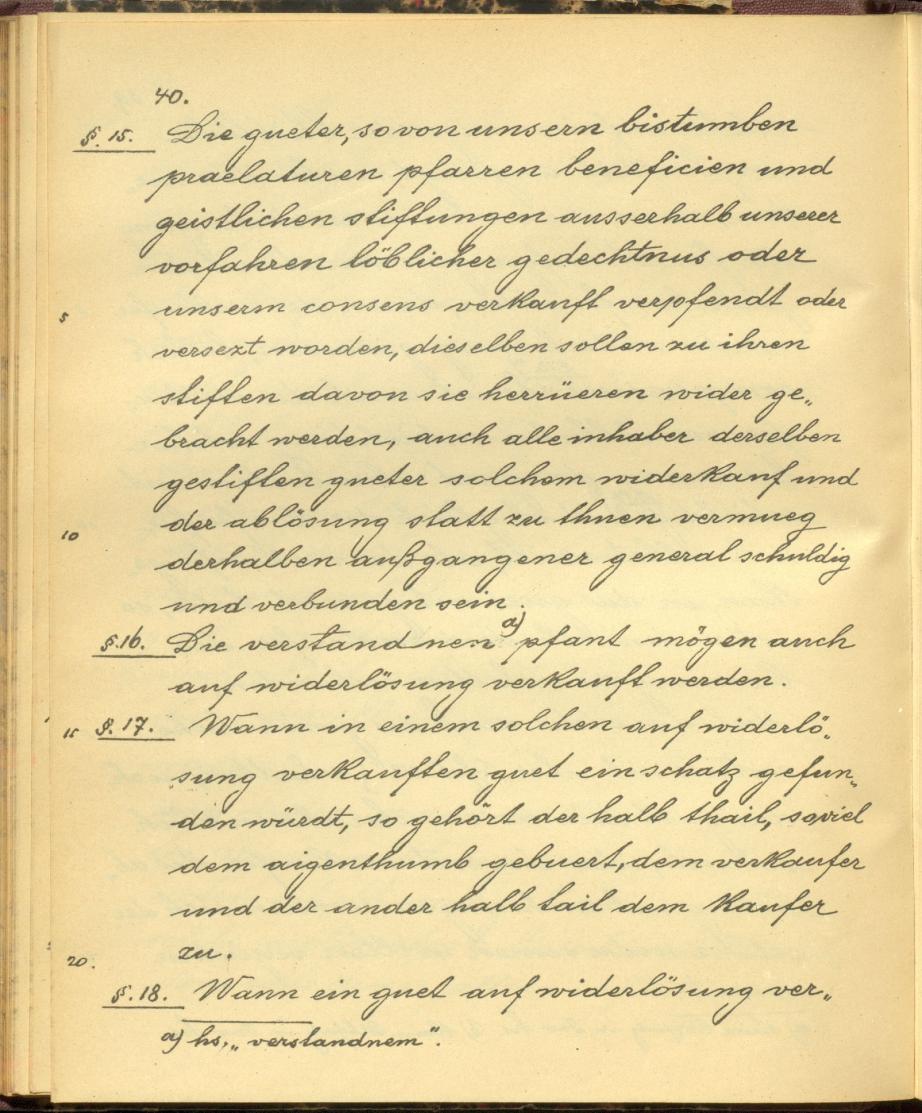 40.
§. 15. Die gueter, so von unsern bistumben
praelaturen pfarren beneficien und
geistlichen stiftungen ausserhalb unserer
vorfahren löblicher gedechtnus oder
5 unserm consens verkauft verpfendt oder
versezt worden, dieselben sollen zu ihren
stiften davon sie herrüeren wider ge„
bracht werden, auch alle inhaber derselben
gestiften gueter solchem widerkauf und
10 der ablösung statt zu thuen vermueg
derhalben außgangener general schuldig
und verbunden sein.
§. 16. Die verstandnen a) pfant mögen auch
auf widerlösung verkauft werden.
15 §. 17. Wann in einem solchen auf widerlö„
sung verkauften guet ein schatz gefun„
den würdt, so gehört der halb thail, soviel
dem aigenthumb gebuert, dem verkaufer
und der ander halb tail dem kaufer
20. zu.
§. 18. Wann ein guet auf widerlösung ver„
a) hs. „verstandnem".